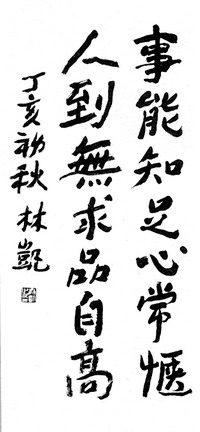 事能知足心常惬
人到無求品自高
丁亥初秋 林凱